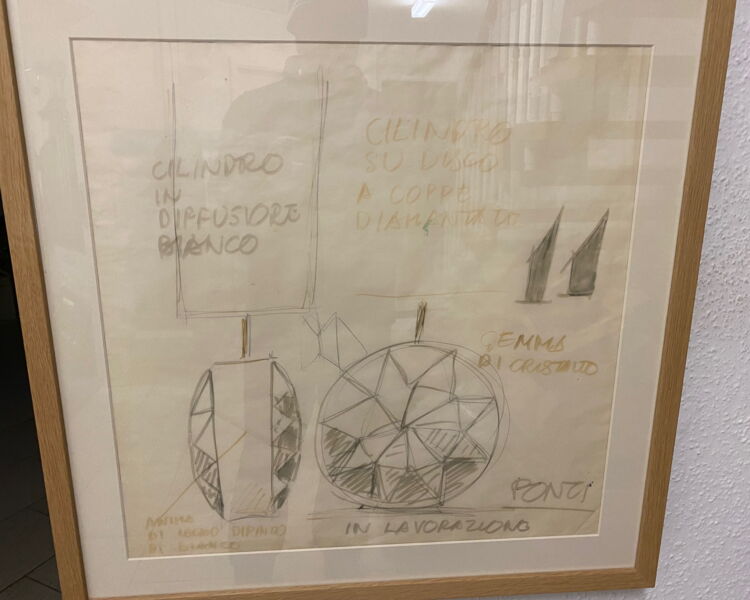 CILINDRO
IN
DIFFUSIORE
BIANCO
CILINDRO
SU
A COPPE
GEMMA
DI CRISTALLO
ANIMA
DI LEGNO DIPINTO
DI BIANCO
IN LAVORAZIONE
PONTI